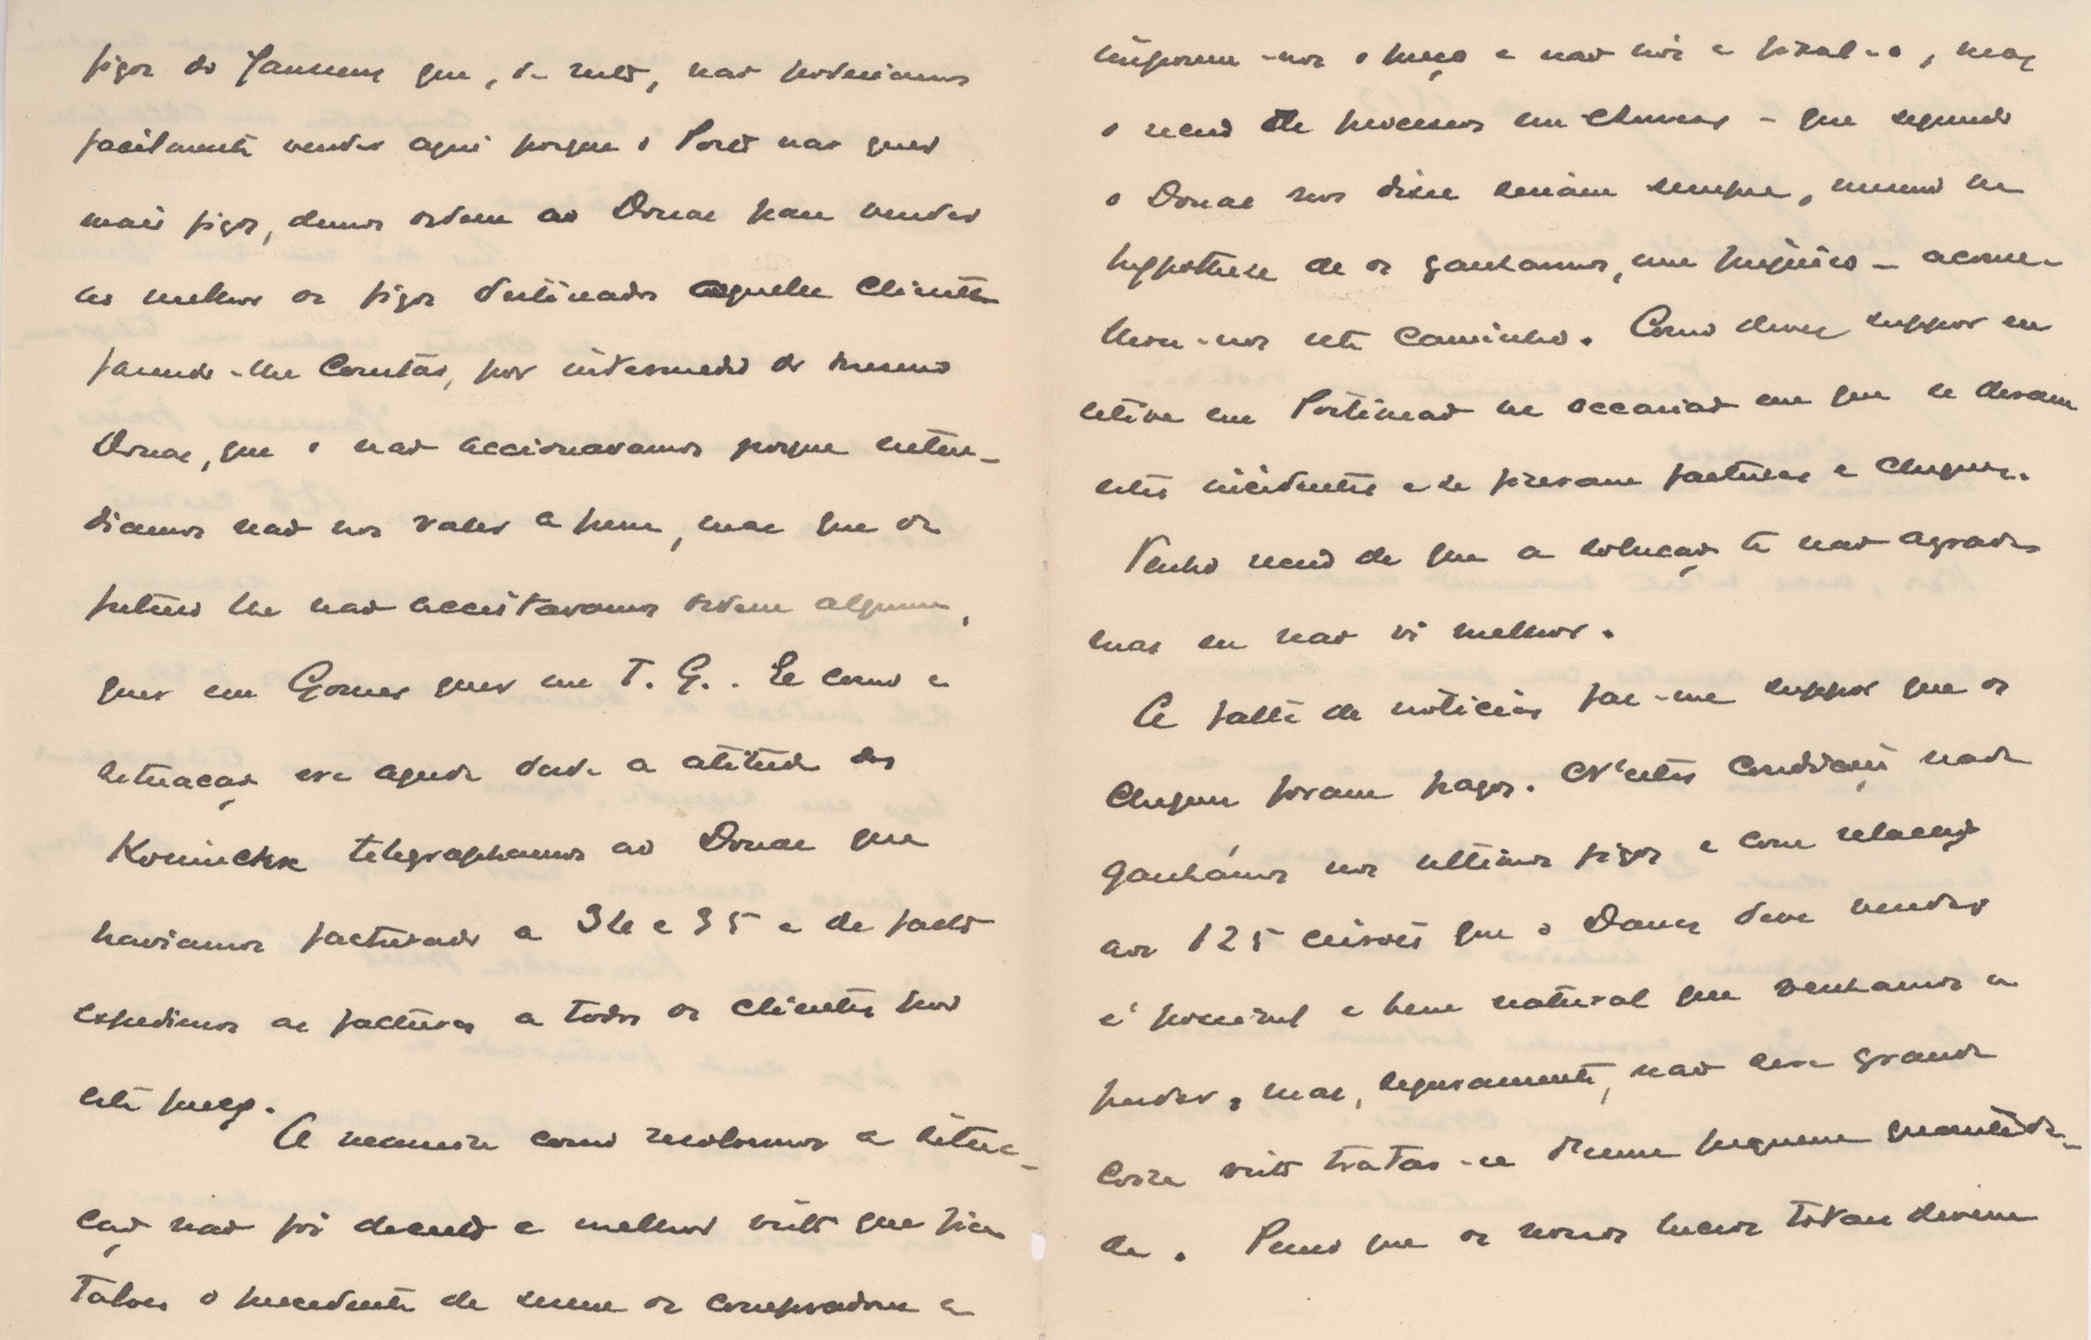 figos do Janssens que, de resto, nao poderiamos
facilmente vender aqui porque o Porto nao quer
mais figos, demos ordem ao Donae para vender
ao melhor os figos destinados aquelle cliente
fazendo-lhe constar, por intermedio do mesmo
Donae, que o nao accionavamos porque enten-
diamos nao nos valer a pena, mas que de
futuro lhe nao acceitavamos ordem alguma,
quer em Gomes quer em T. G.. E como a
situaçao era aguda dada a atitude dos
Koninckx telegraphamos ao Donae que
haviamos facturado a 34 e 35 e de facto
expedimos as facturas a todos os clientes por
este preço.
A maneira como resolvemos a situa-
çao nao foi decerto a melhor visto que fica
talvez o precedente de serem os compradores a
imporem-nos o preço e nao nós a fixal-o, mas
o receio de processos em Anvers - que segundo
o Donae nos disse seriam sempre, mesmo na
hypothese de os ganharmos, um prejuizo - aconse-
lhou-nos este caminho. Como deves suppor eu
estive em Portimao na occasiao em que se deram
estes incidentes e se fizeram facturas e cheques.
Tenho receio de que a soluçao te nao agrade
mas eu nao vi melhor.
A falta de noticias faz-me suppor que os
cheques foram pagos. N'estas condiçoes nada
ganhámos nos ultimos figos e com relaçao
aos 125 ceirões que o Donae deve vender
é possivel e bem natural que venhamos a
perder, mas, seguramente, nao sera grande
coisa visto tratar-se d'uma pequena quantida-
de. Penso que os nossos lucros totaes devem